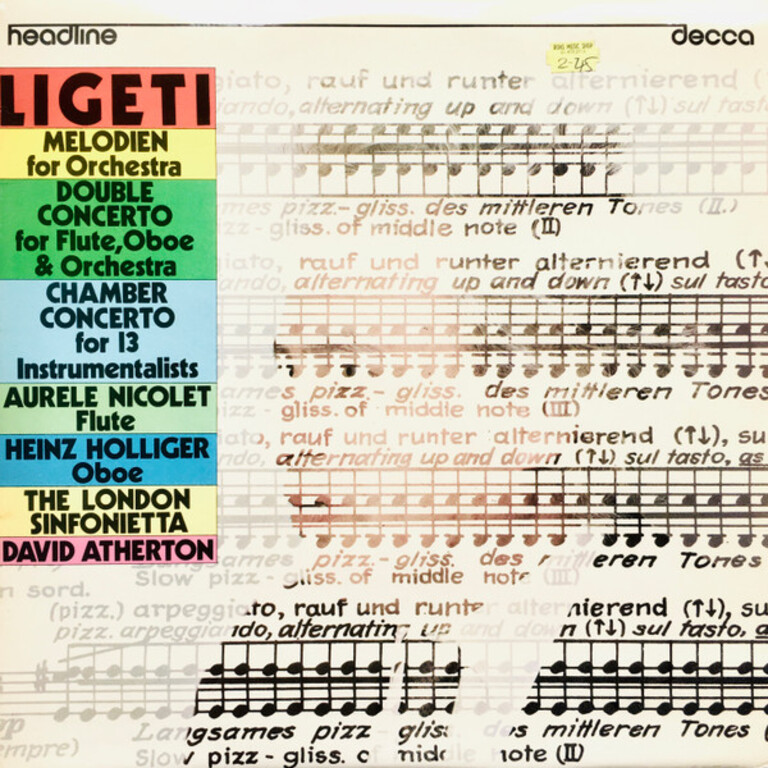 headline
decca
2-45
LIGETI
MELODIEN
for Orchestra
DOUBLE
CONCERTO
for Flute, Oboe
& Orchestra
CHAMBER
CONCERTO
for 13
Instrumentalists
AURELE NICOLET
Flute
HEINZ HOLLIGER
Oboe
THE LONDON
SINFONIETTA
DAVID ATHERTON
giato, rauf und runter alternierend (
ando, alternating up and down (↑↓) sul tast
mes pizz.-gliss. des mittleren Tones (II.)
zz-gliss. of middle note (II)
iato, rauf und runter alternierend (↑
ando, alternating up and down (↑↓) sul tasto
ames pizz.- gliss. des mittleren Tones
izz - gliss. of middle note (III)
iato, rauf und runter alternierend (↑↓), su
ndo, alternating up and down (↑↓) sul tasto, as
Langsames pizz.-gliss. des mittleren Tones
Slow pizz - gliss. of middle note (III)
n sord.
(pizz.) arpeggiato, rauf und runter alternierend (↑↓), su
pizz. arpeggiando, alternating up and down (↑↓) sul tasto, a
pp
empre)
Langsames pizz - gliss. des mittleren Tones (
Slow pizz - gliss. o middle note (II)